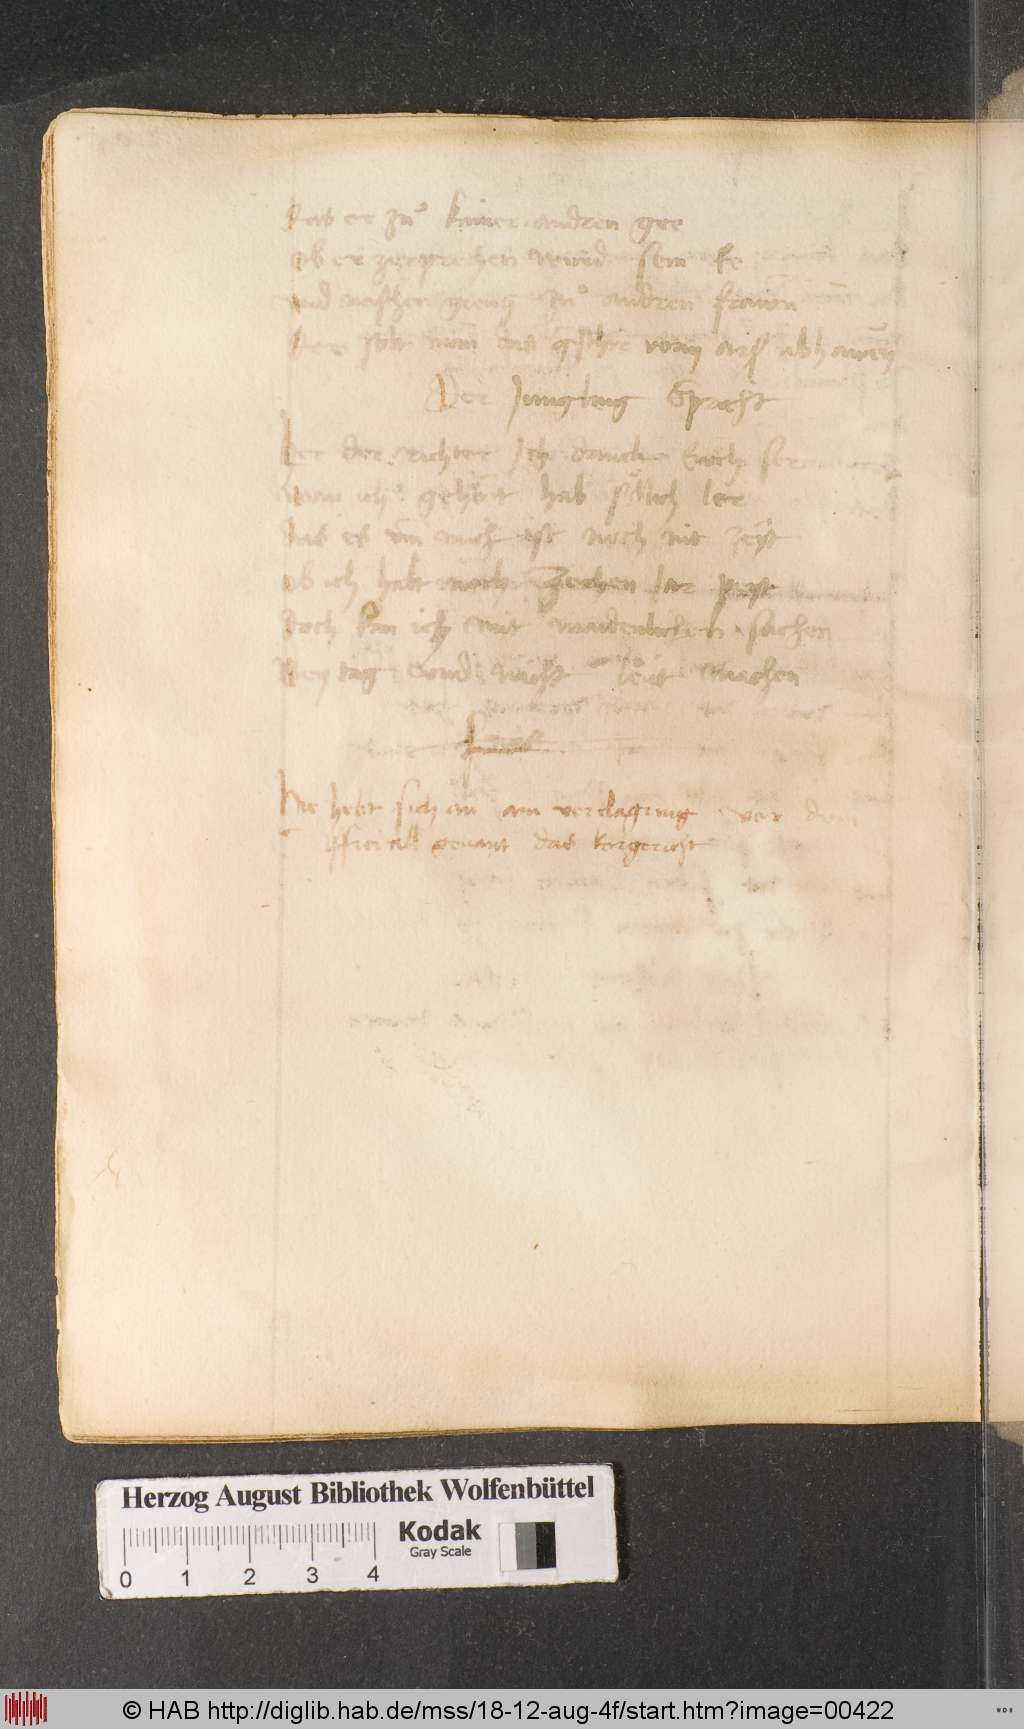 das er zuͦ kainer andren gee
ob er zerprechen wurd sein Ee
vnd naschen gieng zuͦ andren frawen
Der solt man das gschir vom arß abhawen
Der Jungling Spricht
Her der richter Ich danck Euch ser
wan ich gehört hab sölich ler
das es vm mich ist noch nit zeyt
ob ich halt noch zechen iar peyt
doch kan ich mit maidenlichen sachen
Pey tag vnd nacht leüt machen
Hie hebt sich an ain verclagung vor dem
offiziall genant das korgericht
Herzog August Bibliothek Wolfenbüttel
Kodak
Gray Scale
0 1 2 3 4
© HAB http://diglib.hab.de/mss/18-12-aug-4f/start.htm?image=00422